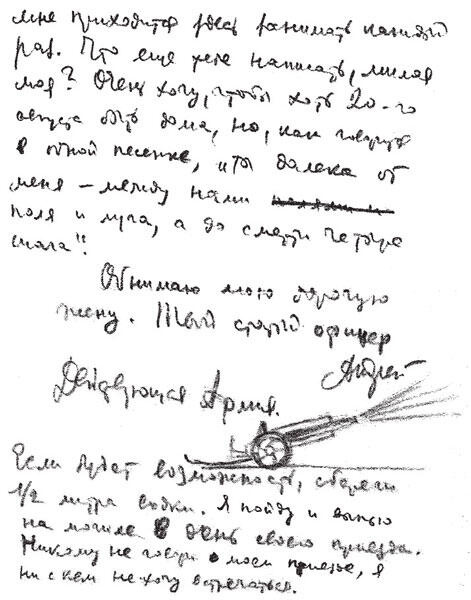 мне приходится здесь занимать каждый
раз. Что еще тебе написать, милая
моя? Очень хочу, чтобы хоть 20-го
августа быть дома, но, как говорится
в одной песенке, „ты далека от
меня – между нами
поля и луга, а до смерти четыре
шага“.
Обнимаю мою дорогую
жену. Твой старый офицер
Андрей
Действующая Армия.
Если будет возможность, сбереги
1/2 литра водки. Я пойду и выпью
на могиле в день своего приезда.
Никому не говори о моем приезде, я
ни с кем не хочу встречаться.